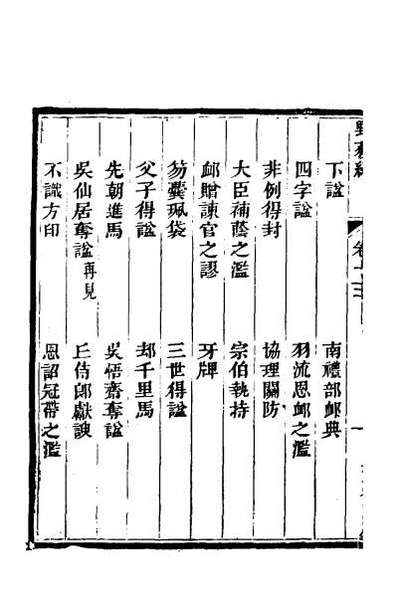 下諡　南禮部卹典
四字諡　羽流恩卹之濫
非例得封　協理關防
大臣補蔭之濫　宗伯執持
卹贈諫官之謬　牙牌
笏囊珮袋　三世得諡
父子得諡　却千里馬
先朝進馬　吳悟齋奪諡
吳仙居奪諡再見　丘侍郎獻諛
不識方印　恩詔冠帶之濫